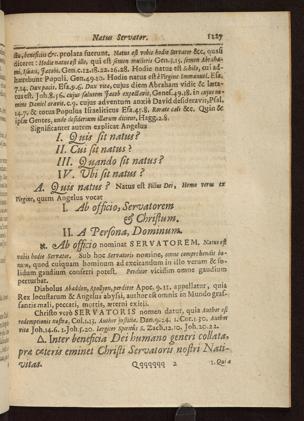 Natus Servator. 1127
stu, beneficiis &c. prolata fuerunt. Natus est vobis hodie Servator &c. quasi
diceret: Hodie natus est ille, qui est semen mulieris Gen.3.15. semen Abraha-
mi, Isaaci, Jacobi. Gen.c.12.18.22.26.28. Hodie natus est Schilo, cui ad-
hærebunt Populi. Gen.49.10. Hodie natus est è Virgine Immanuel. Esa.
7.14. Dux pacis. Esa.9.6. Dux vitæ, cujus diem Abraham vidit & læta-
tus est. Joh.8.56. cujus salutem Jacob expectavit, Genes.49.18. in cujus no-
mine Daniel oravit. c.9. cujus adventum anxiè David desideravit, Psal.
14.7. & totus Populus Israëliticus Esa.45.8. Rorate cœli &c. Quin &
ipsæ Gentes, unde desiderium illarum dicitur, Hagg.2.8.
Significanter autem explicat Angelus
I. Quis sit natus?
II. Cui sit natus?
III. Quando sit natus?
IV. Ubi sit natus?
A. Quis natus? Natus est Filius Dei, Homo verus ex
Virgine, quem Angelus vocat
I. Ab officio, Servatorem
& Christum.
II. A Persona, Dominum.
א. Ab officio nominat SERVATOREM, Natus est
vobis hodie Servator. Sub hoc Servatoris nomine, omne comprehendit bo-
num, quod cuiquam hominum ad excitandum in illo verum & so-
lidum gaudium conferri potest. Perditor vicissim omne gaudium
perturbat.
Diabolus Abaddon, Apollyon, perditor Apoc. 9.11. appellatur, quia
Rex locustarum & Angelus abyssi, author est omnis in Mundo gras-
santis mali, peccati, mortis, æterni exitii.
Christo verò SERVATORIS nomen datur, quia Author est
redemptionis nostræ, Col.1.13. Author justitiæ. Dan.9.24. 1.Cor.1.30. Author
vitæ Joh.14.6. 1.Joh.5.20. Largitor Spiritus S. Zach.12.10. Joh.20.22.
Δ. Inter beneficia Dei humano generi collata,
præ cæteris eminet Christi Servatoris nostri Nati-
vitas.
Qqqqqqq 2 1. Quia